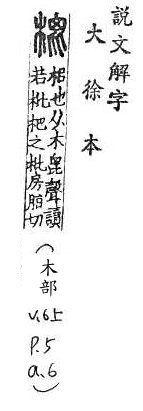 說文解字
大徐本
梠也从木毘聲讀
若枇杷之枇房脂切
(木部
V.6上
P.5
a.6)